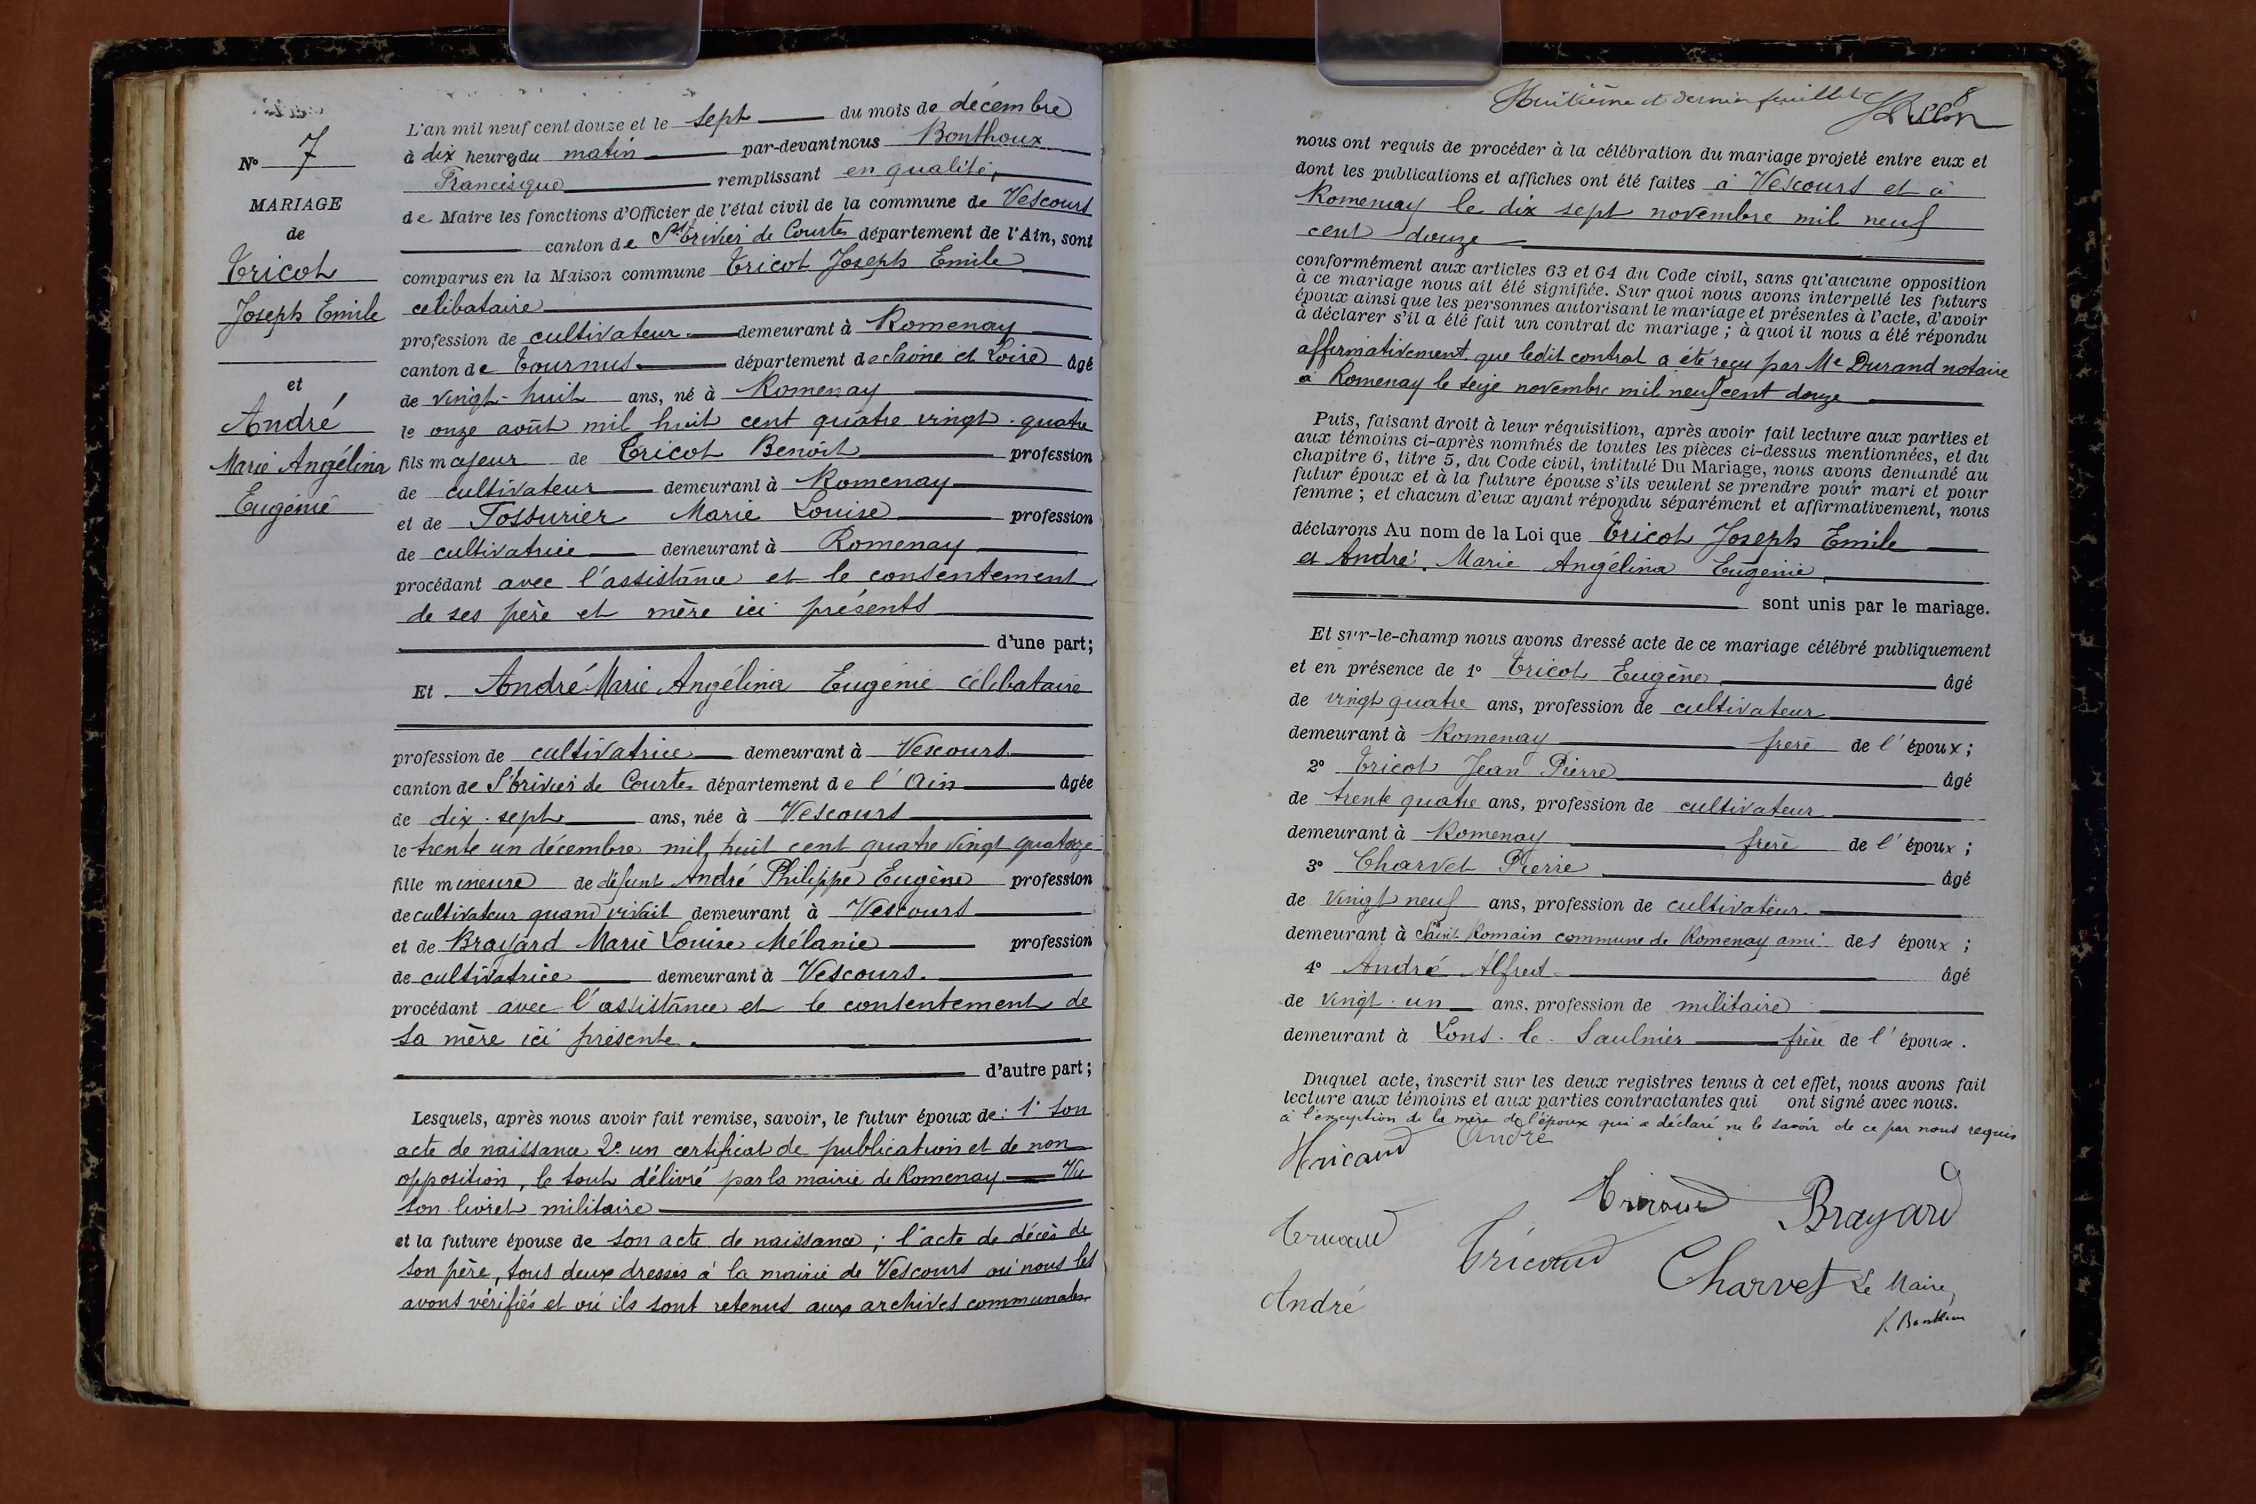 N° 7
MARIAGE
de
Tricot
Joseph Emile
et
André
Marie Angélina
Eugénie
L'an mil neuf cent douze et le sept du mois de décembre
à dix heures du matin par-devant nous Bonthoux
Francisque remplissant en qualité,
de Maire les fonctions d'Officier de l'état civil de la commune de Vescours
canton de St Trivier de Courtes département de l'Ain, sont
comparus en la Maison commune Tricot Joseph Emile
celibataire
profession de cultivateur demeurant à Romenay
canton de Tournus département de Saône et Loire âgé
de vingt-huit ans, né à Romenay
le onze août mil huit cent quatre vingt-quatre
fils majeur de Tricot Benoît profession
de cultivateur demeurant à Romenay
et de Marie Louise profession
de cultivatrice demeurant à Romenay
procédant avec l'assistance et le consentement
de ses père et mère ici présents
d'une part;
Et André Marie Angélina Eugénie célibataire
profession de cultivatrice demeurant à Vescours
canton de St Trivier de Courtes département de l'Ain âgée
de dix-sept ans, née à Vescours
le trente un décembre mil huit cent quatre vingt quatorze
fille mineure de défunt André Philippe Eugène profession
de cultivateur quand vivait demeurant à Vescours
et de Brayard Marie Louise Mélanie profession
de cultivatrice demeurant à Vescours.
procédant avec l'assistance et le consentement de
sa mère ici présente.
d'autre part;
Lesquels, après nous avoir fait remise, savoir, le futur époux de: 1° son
acte de naissance 2° un certificat de publication et de non
opposition, le tout délivré par la mairie de Romenay Vu
son livret militaire
et la future épouse de son acte de naissance; l'acte de décès de
son père, tous deux dressés à la mairie de Vescours où nous les
avons vérifiés et où ils sont retenus aux archives communales
Huitième et dernier feuillet
8
nous ont requis de procéder à la célébration du mariage projeté entre eux et
dont les publications et affiches ont été faites à Vescours et à
Romenay le dix sept novembre mil neuf
cent douze
conformément aux articles 63 et 64 du Code civil, sans qu'aucune opposition
à ce mariage nous ait été signifiée. Sur quoi nous avons interpellé les futurs
époux ainsi que les personnes autorisant le mariage et présentes à l'acte, d'avoir
à déclarer s'il a été fait un contrat de mariage; à quoi il nous a été répondu
affirmativement que ledit contrat a été reçu par Me Durand notaire
à Romenay le seize novembre mil neuf cent douze
Puis, faisant droit à leur réquisition, après avoir fait lecture aux parties et
aux témoins ci-après nommés de toutes les pièces ci-dessus mentionnées, et du
chapitre 6, titre 5, du Code civil, intitulé Du Mariage, nous avons demandé au
futur époux et à la future épouse s'ils veulent se prendre pour mari et pour
femme; et chacun d'eux ayant répondu séparément et affirmativement, nous
déclarons Au nom de la Loi que Tricot Joseph Emile
et André Marie Angélina Eugénie,
sont unis par le mariage.
Et sur-le-champ nous avons dressé acte de ce mariage célébré publiquement
et en présence de 1° Tricot Eugène âgé
de vingt quatre ans, profession de cultivateur
demeurant à Romenay frère de l'époux;
2° Tricot Jean Pierre âgé
de trente quatre ans, profession de cultivateur
demeurant à Romenay frère de l'époux;
3° Charvet Pierre âgé
de vingt neuf ans, profession de cultivateur
demeurant à Saint Romain commune de Romenay ami des époux;
4° André Alfred âgé
de vingt-un ans, profession de militaire
demeurant à Lons-le-Saulnier frère de l'épouse.
Duquel acte, inscrit sur les deux registres tenus à cet effet, nous avons fait
lecture aux témoins et aux parties contractantes qui ont signé avec nous.
à l'exception de la mère de l'époux qui a déclaré ne le savoir de ce par nous requis
André
Brayard
Charvet Le Maire,
André